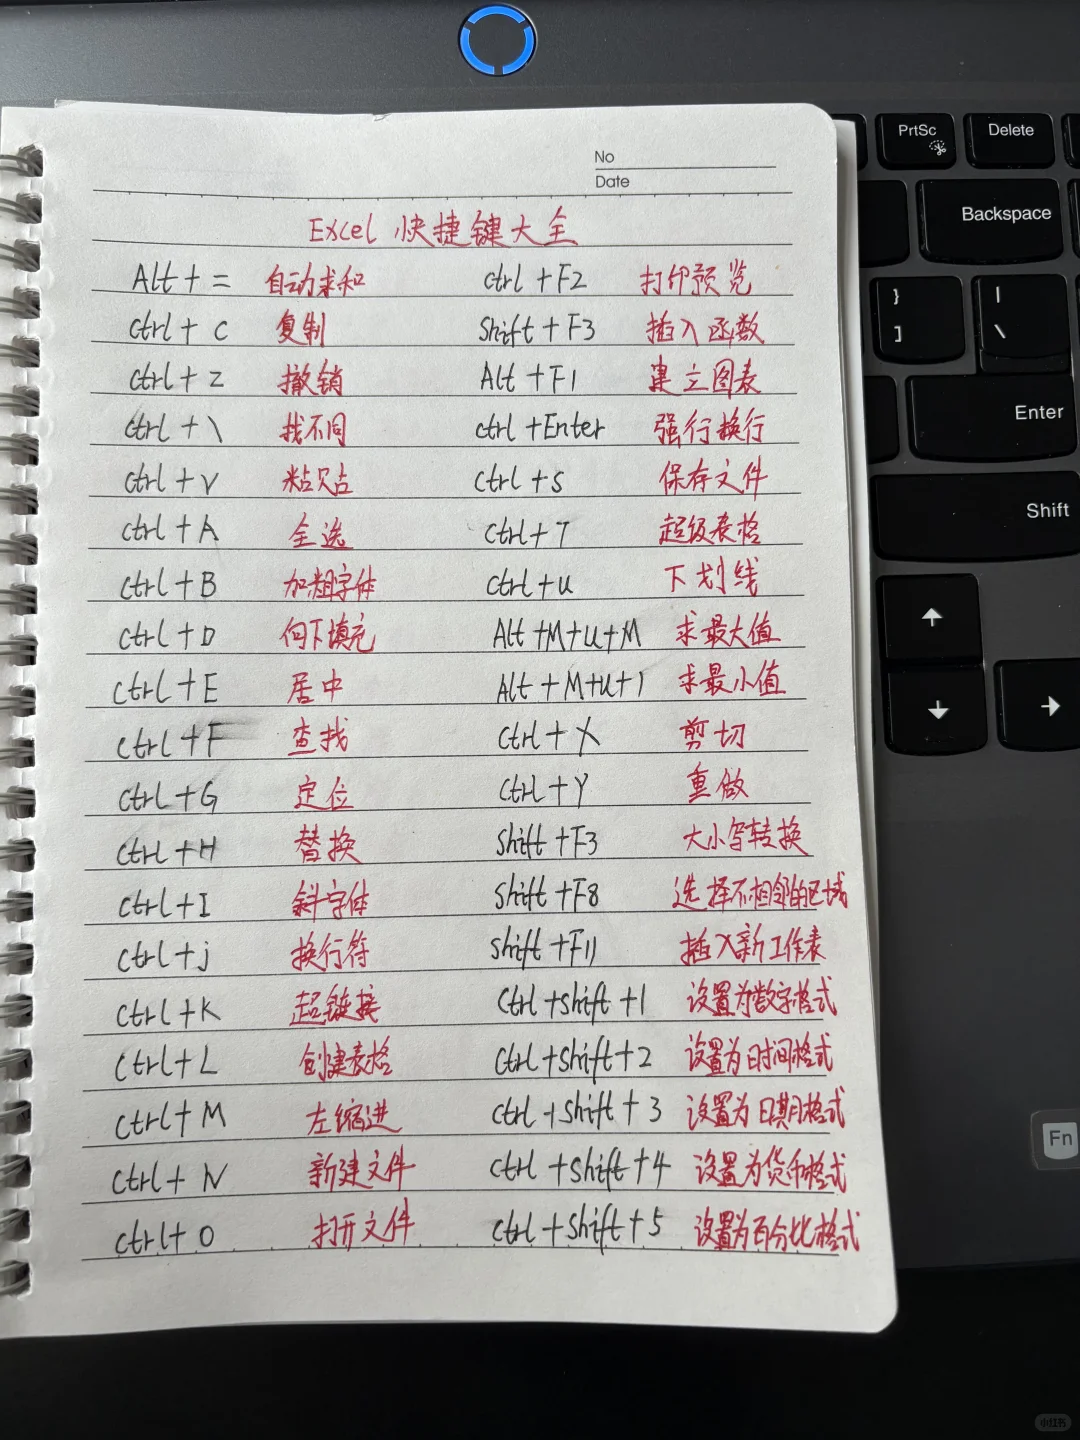 No
Date
Excel 快捷键大全
Alt + = 自动求和 ctrl + F2 打印预览
ctrl + C 复制 Shift + F3 插入函数
ctrl + Z 撤销 Alt + F1 建立图表
ctrl + \ 找不同 ctrl + Enter 强行换行
ctrl + V 粘贴 ctrl + S 保存文件
ctrl + A 全选 ctrl + T 超级表格
ctrl + B 加粗字体 ctrl + u 下划线
ctrl + D 向下填充 Alt + M + u + M 求最大值
ctrl + E 居中 Alt + M + u + I 求最小值
ctrl + F 查找 ctrl + X 剪切
ctrl + G 定位 ctrl + Y 重做
ctrl + H 替换 shift + F3 大小写转换
ctrl + I 斜字体 shift + F8 选择不相邻的区域
ctrl + j 换行符 shift + F11 插入新工作表
ctrl + K 超链接 ctrl + shift + 1 设置为数字格式
ctrl + L 创建表格 ctrl + shift + 2 设置为时间格式
ctrl + M 左缩进 ctrl + shift + 3 设置为日期格式
ctrl + N 新建文件 ctrl + shift + 4 设置为货币格式
ctrl + O 打开文件 ctrl + shift + 5 设置为百分比格式
PrtSc Delete
Backspace
} |
] \
Enter
Shift
Fn
小红书